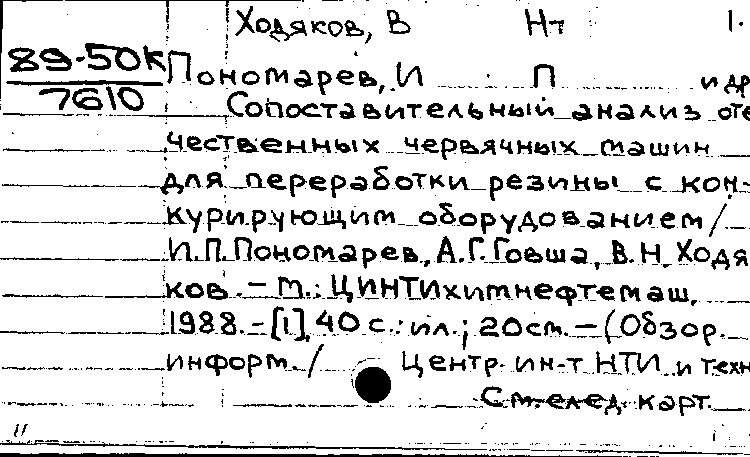 Ходяков, В Нт 1.
89-50К
7610
Пономарев, И П и др
Сопоставительный анализ оте
чественных червячных машин
для переработки резины с кон-
курирующим оборудованием /
И.П.Пономарев, А.Г.Говша, В.Н.Ходя
ков. – М.: ЦИНТИхимнефтемаш,
1988. – [1], 40 с.: ил.; 20 см. – (Обзор.
информ. / Центр. ин-т НТИ и техн
См. след. карт.